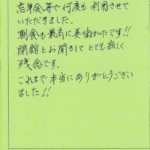 忘年会等で何度も利用させて
いただきました。
朝食も最高に美味かったです!!
閉館とお聞きして とても寂しく
残念です。
これまで本当にありがとうござい
ました!!